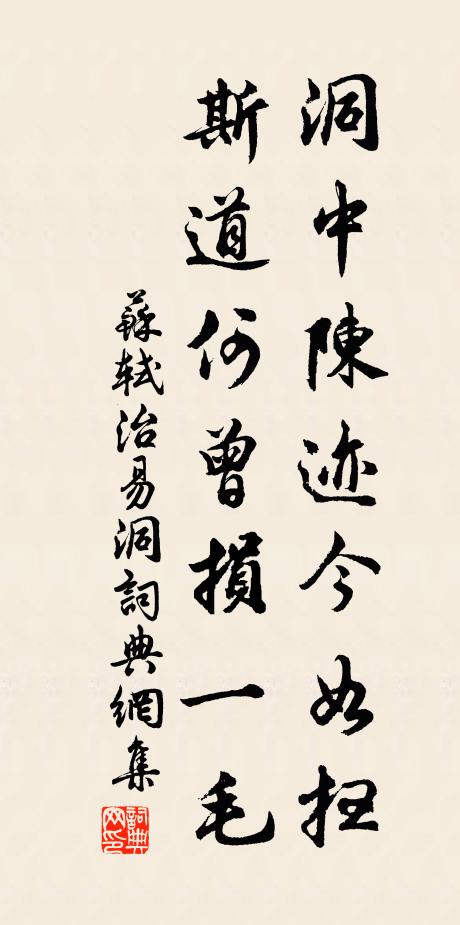 洞中陳迹今如扫
斯道何曾損一毛
蘇軾治易洞詞典網集
詞典
网印